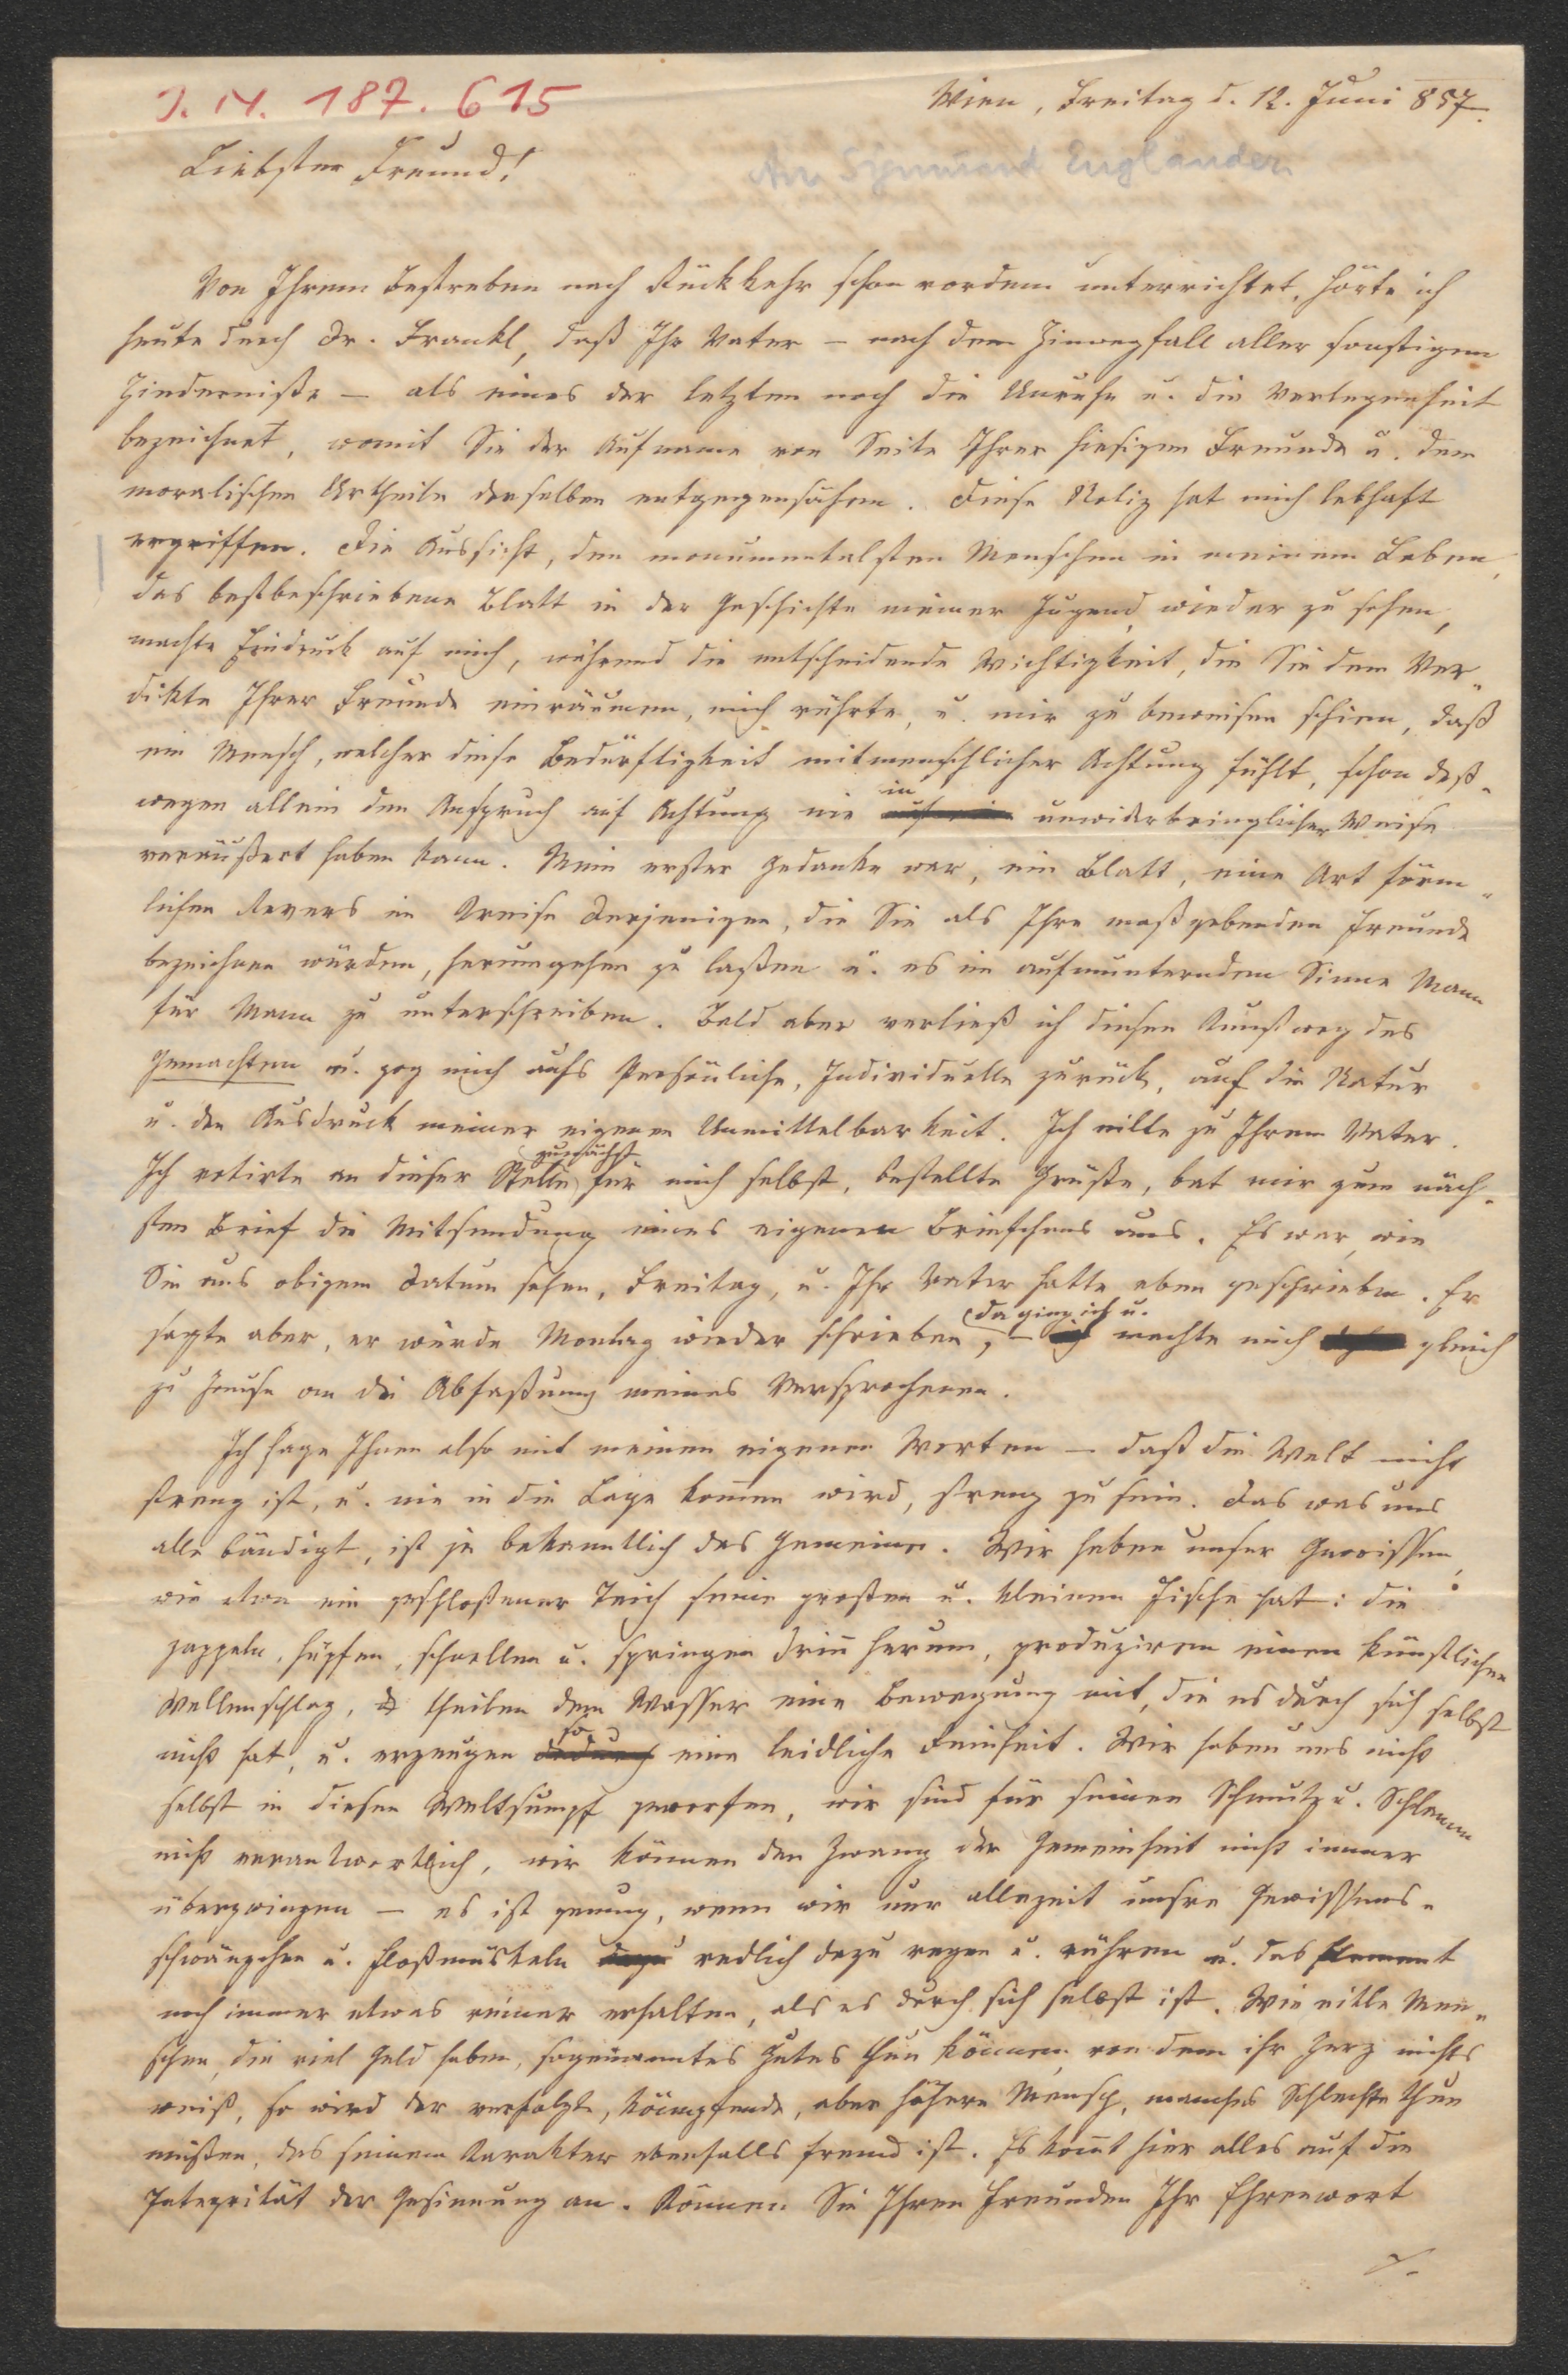 J. N. 187. 615
Wien, Freitag d. 12. Juni 857.
An Sigmund Engländer
Liebster Freund!
Von Ihrem Bestreben nach Rückkehr schon vordem unterrichtet, hörte ich
heute durch Dr. Frankl, daß Ihr Vater – nach dem Hinwegfall aller sonstigen
Hinderniße – als eines der letzten noch die Unruhe u. die Verlegenheit
bezeichnet, womit Sie der Aufname von Seite Ihrer hiesigen Freunde u. dem
moralischen Urtheile derselben entgegensähen. Diese Notiz hat mich lebhaft
ergriffen. Die Aussicht, den monumentalsten Menschen in meinem Leben,
das bestbeschriebene Blatt in der Geschichte meiner Jugend, wieder zu sehen,
machte Eindruck auf mich, während die entscheidende Wichtigkeit, die Sie dem Ver-
dikte Ihrer Freunde einräumen, mich rührte, u. mir zu beweisen schien, daß
ein Mensch, welcher diese Bedürftigkeit mitmenschlicher Achtung fühlt, schon deß-
wegen allein den Anspruch auf Achtung nie in unwiderbringlicher Weise
veräußert haben kann. Mein erster Gedanke war, ein Blatt, eine Art förm-
lichen Revers im Kreise Derjenigen, die Sie als Ihre maßgebenden Freunde
bezeichnen würden, herumgehen zu laßen u. es im aufmunterndem Sinne Mann
für Mann zu unterschreiben. Bald aber verließ ich diesen Kunstweg des
Gemachten u. zog mich aufs Persönliche, Individuelle zurück, auf die Natur
u. den Ausdruck meiner eigenen Unmittelbarkeit. Ich eilte zu Ihrem Vater.
Ich votirte an dieser Stelle zunächst für mich selbst, bestellte Grüße, bat mir zum näch-
sten Brief die Mitsendung eines eigenen Briefchens aus. Es war, wie
Sie aus obigem Datum sehen, Freitag, u. Ihr Vater hatte eben geschrieben. Er
sagte aber, er würde Montag wieder schrieben, – da ging ich u. machte mich gleich
zu Hause an die Abfaßung meines Versprochenen.
Ich sage Ihnen also mit meinen eigenen Worten – daß die Welt nicht
streng ist, u. nie in die Lage kommen wird, streng zu sein. Das was uns
alle bändigt, ist ja bekanntlich das Gemeine. Wir haben unser Gewissen,
wie etwa ein geschloßener Teich seine großen u. kleinen Fische hat: die
zappeln, hüpfen, schnellen u. springen drin herum, produziren einen künstlichen
Wellenschlag, theilen dem Wasser eine Bewegung mit, die es durch sich selbst
nicht hat, u. erzeugen so eine leidliche Reinheit. Wir haben uns nicht
selbst in diesen Weltsumpf geworfen, wir sind für seinen Schmutz u. Schlamm
nicht verantwortlich, wir können den Zwang der Gemeinheit nicht immer
überzwingen – es ist genug, wenn wir nur allezeit unsre Gewissens-
schwänzchen u. Floßmuskeln redlich dazu regen u. rühren u. das Element
noch immer etwas reiner erhalten, als es durch sich selbst ist. Wie eitle Men-
schen, die viel Geld haben, sogenanntes Gutes thun können, von dem ihr Herz nichts
weiß, so wird der verfolgte, kämpfende, aber höhere Mensch, manches Schlechte thun
müßen, das seinem Karakter ebenfalls fremd ist. Es komt hier alles auf die
Integrität der Gesinnung an. Können Sie Ihren Freunden Ihr Ehrenwort